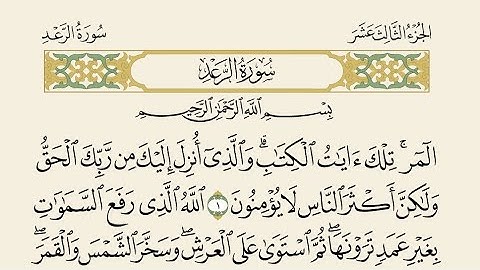 الجُزْءُ الثَّالِثَ عَشَرَ
سُورَةُ الرَّعْدِ
سُورَةُ الرَّعْدِ
بِسْمِ اللَّهِ الرَّحْمَٰنِ الرَّحِيمِ
الٓمٓرۚ تِلْكَ ءَايَٰتُ الْكِتَٰبِۗ وَالَّذِىٓ أُنزِلَ إِلَيْكَ مِن رَّبِّكَ الْحَقُّ
وَلَٰكِنَّ أَكْثَرَ النَّاسِ لَا يُؤْمِنُونَ ١ اللَّهُ الَّذِى رَفَعَ السَّمَٰوَٰتِ
بِغَيْرِ عَمَدٍ تَرَوْنَهَاۖ ثُمَّ اسْتَوَىٰ عَلَى الْعَرْشِۖ وَسَخَّرَ الشَّمْسَ وَالْقَمَرَۖ